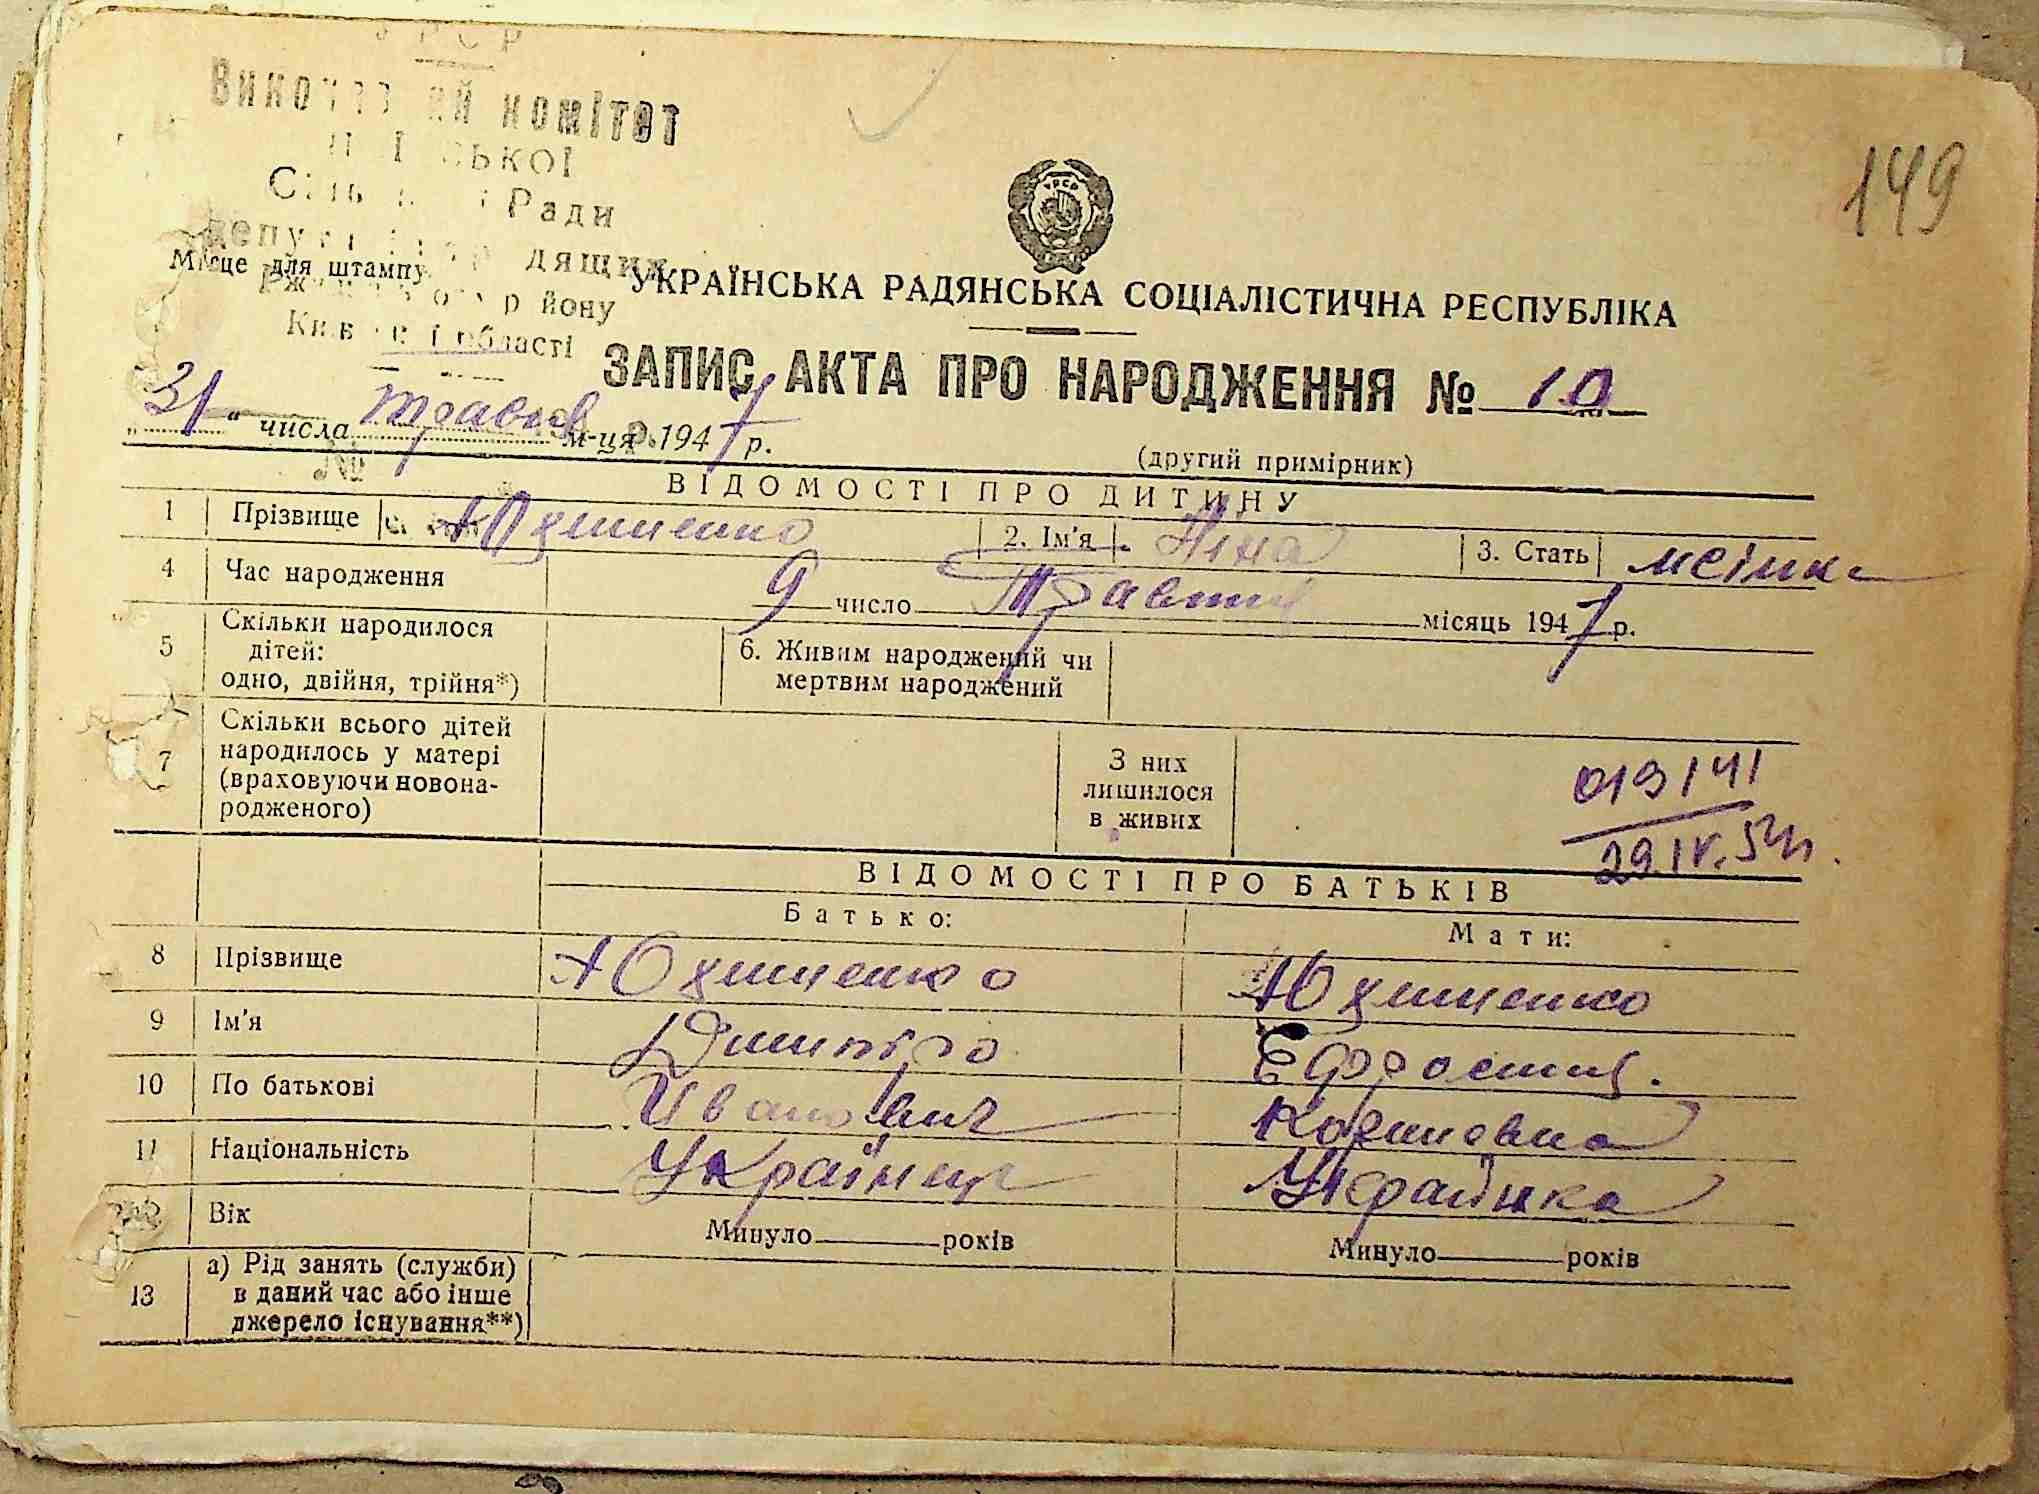 149
УРСР
Виконавчий комітет
Ради
Місце для штампу
УКРАЇНСЬКА РАДЯНСЬКА СОЦІАЛІСТИЧНА РЕСПУБЛІКА
ЗАПИС АКТА ПРО НАРОДЖЕННЯ № 10
„31“ числа травня м-ця 1947 р.
(другий примірник)
№
ВІДОМОСТІ ПРО ДИТИНУ
1 Прізвище Юхименко 2. Ім'я Ніна 3. Стать
4 Час народження 9 число Травня місяць 1947 р.
5 Скільки народилося дітей: одно, двійня, трійня*) 6. Живим народжений чи мертвим народжений
7 Скільки всього дітей народилось у матері (враховуючи новона-родженого) З них лишилося в живих
019141
29.IV.54р.
ВІДОМОСТІ ПРО БАТЬКІВ
Батько: Мати:
8 Прізвище Юхименко Юхименко
9 Ім'я Дмитро
10 По батькові Иванович
11 Національність Українец Украінка
12 Вік Минуло років Минуло років
13 а) Рід занять (служби) в даний час або інше джерело існування**)